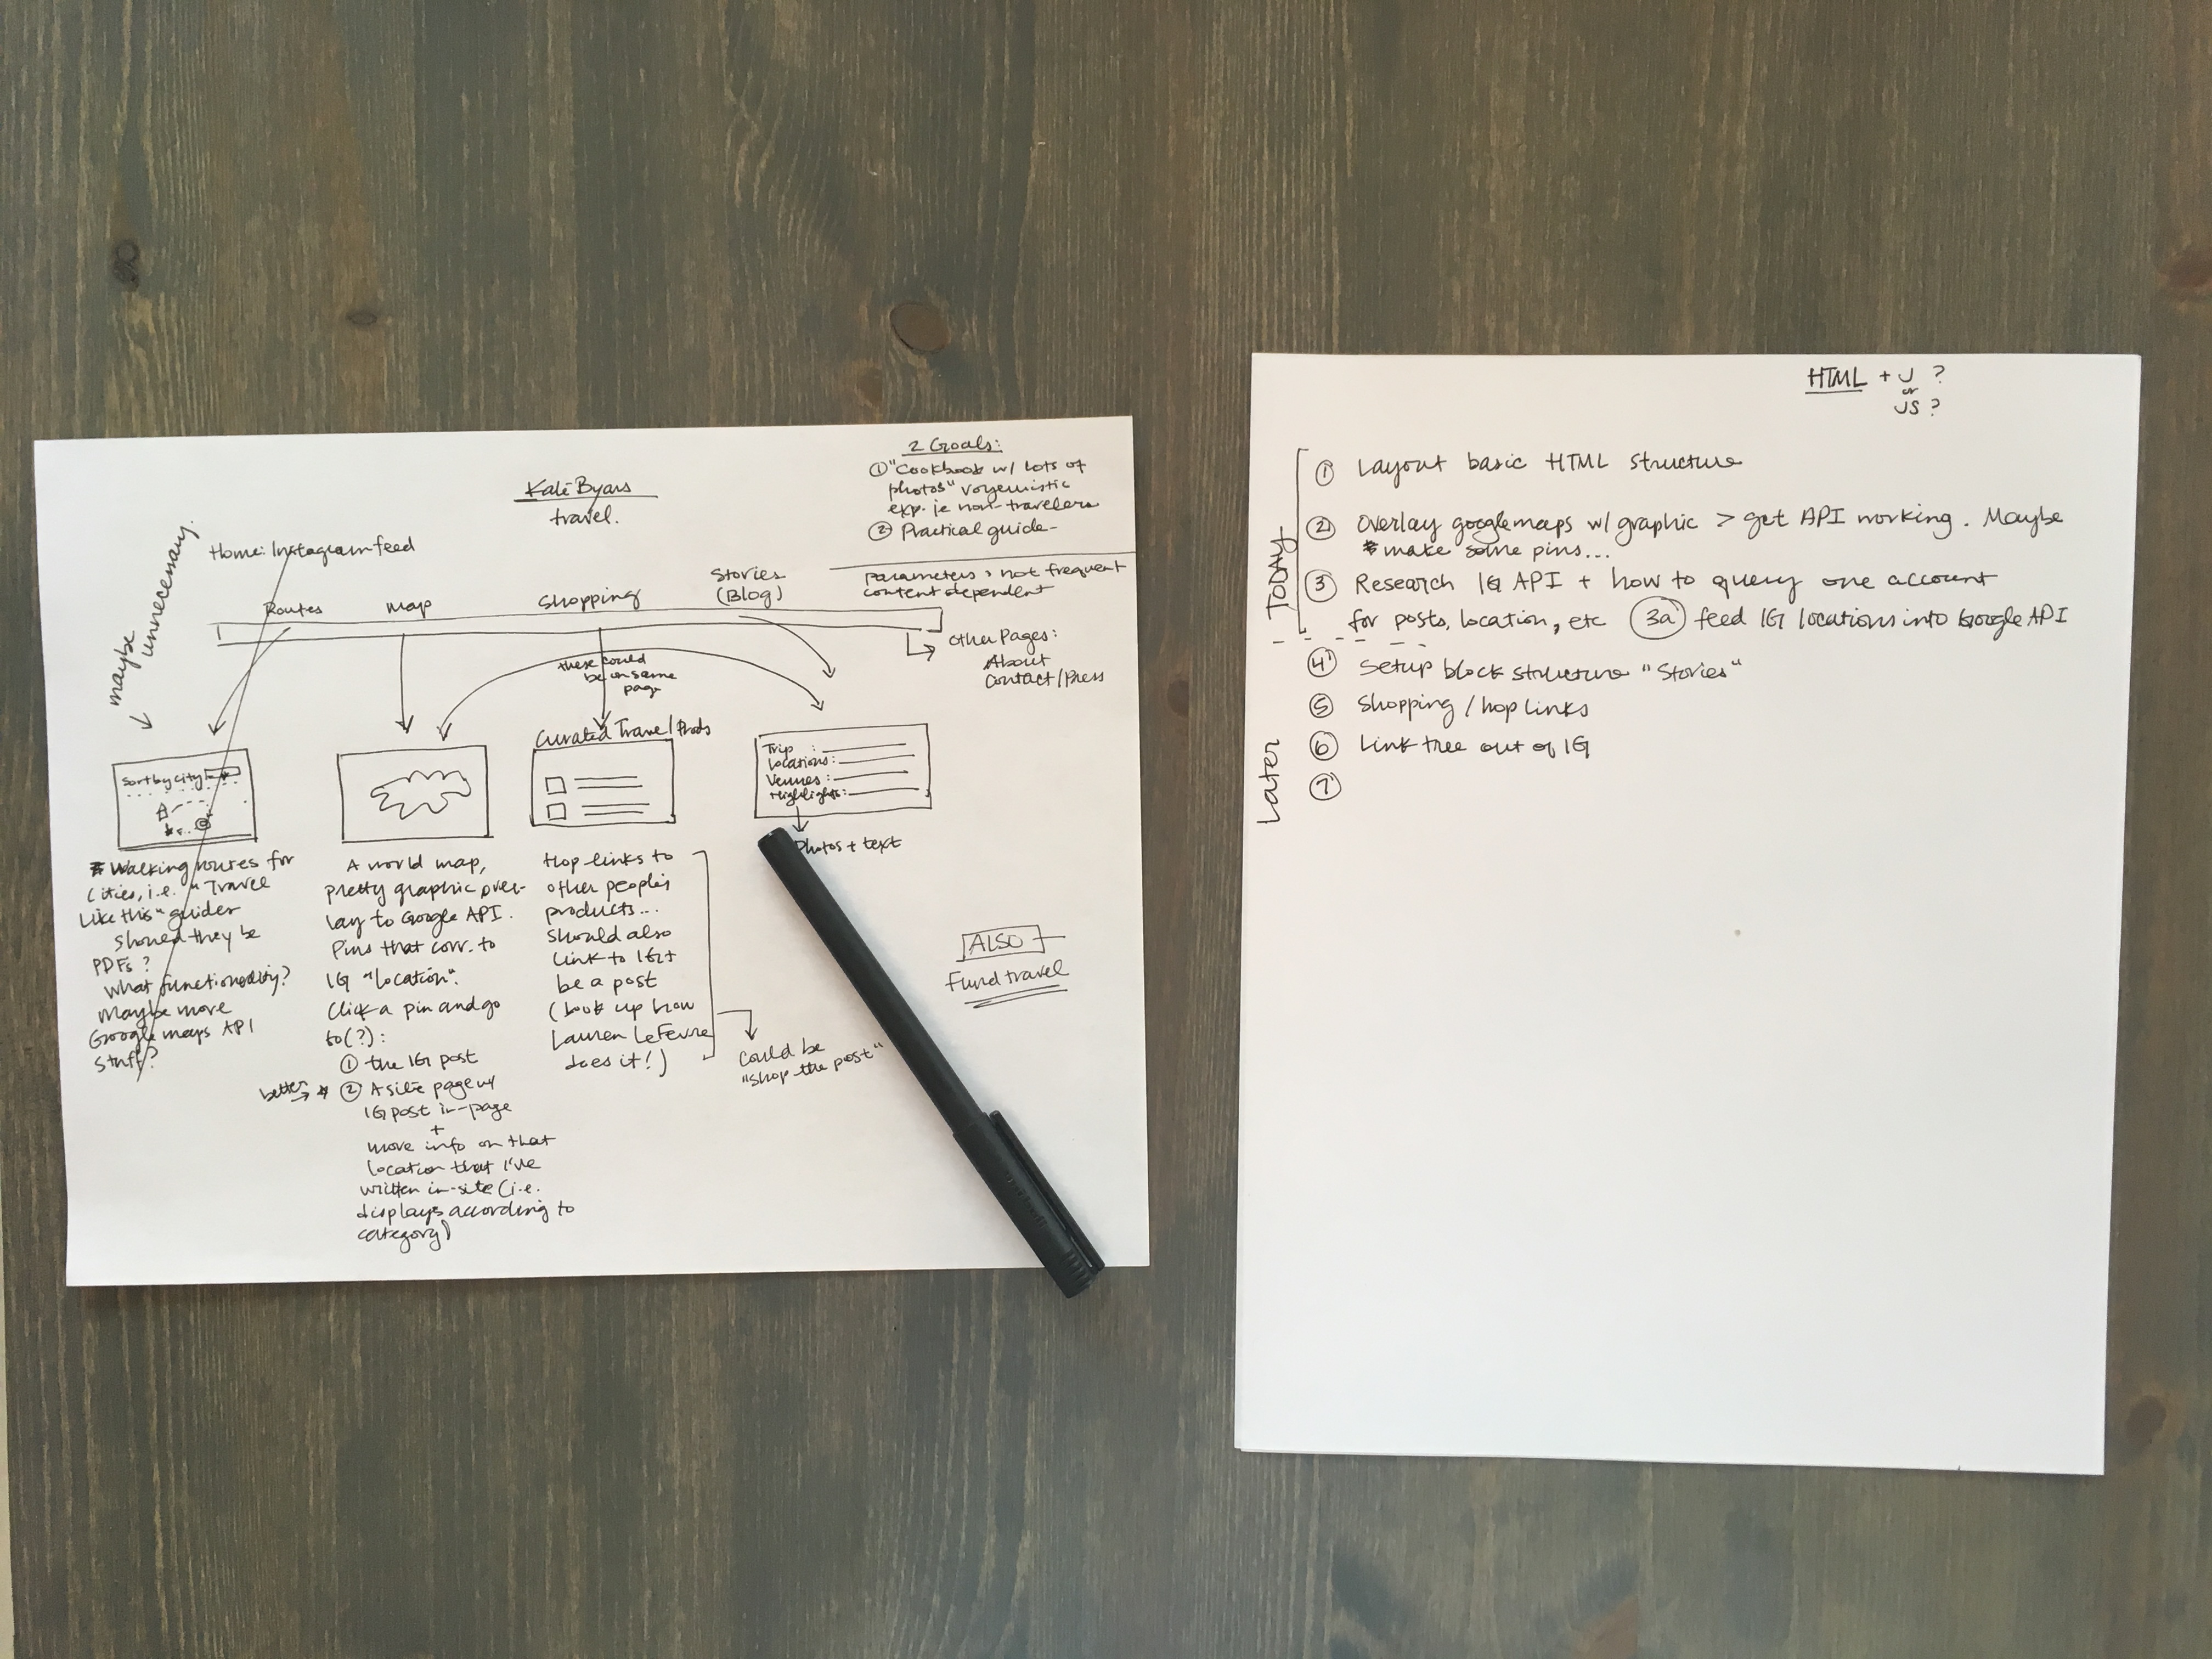 Kale Byars
travel.
2 Goals:
① "Cookbook w/ lots of
photos" voyeuristic
exp. ie non-travelers
② Practical guide-
parameters > not frequent
content dependent
maybe
unnecessary.
Home: Instagram feed
Routes
Map
Shopping
Stories
(Blog)
these could
be on same
page
Other Pages:
About
Contact/Press
Sort by city
Curated Travel Prods
Trip :
Locations:
Venues:
Highlights:
Photos + text
Walking routes for
Cities, i.e. "Travel
Like this" guides
should they be
PDFs?
What functionality?
Maybe more
Google maps API
stuff?
A world map,
pretty graphic over-
lay to Google API.
Pins that corr. to
IG "location".
Click a pin and go
to(?):
① the IG post
better →
② A site page w/
IG post in-page
+
more info on that
location that I've
written in-site (i.e.
displays according to
category)
Hop-links to
other people's
products...
should also
link to IG +
be a post
(Look up how
Lauren LeFevre
does it!)
Could be
"Shop the post"
ALSO
Fund travel
HTML + J ?
or
JS ?
TODAY
① Layout basic HTML structure
② Overlay googlemaps w/ graphic > get API working. Maybe
make some pins...
③ Research IG API + how to query one account
for posts, location, etc 3a feed IG locations into Google API
Later
④ Setup block structure "Stories"
⑤ Shopping / hop links
⑥ Link tree out of IG
⑦